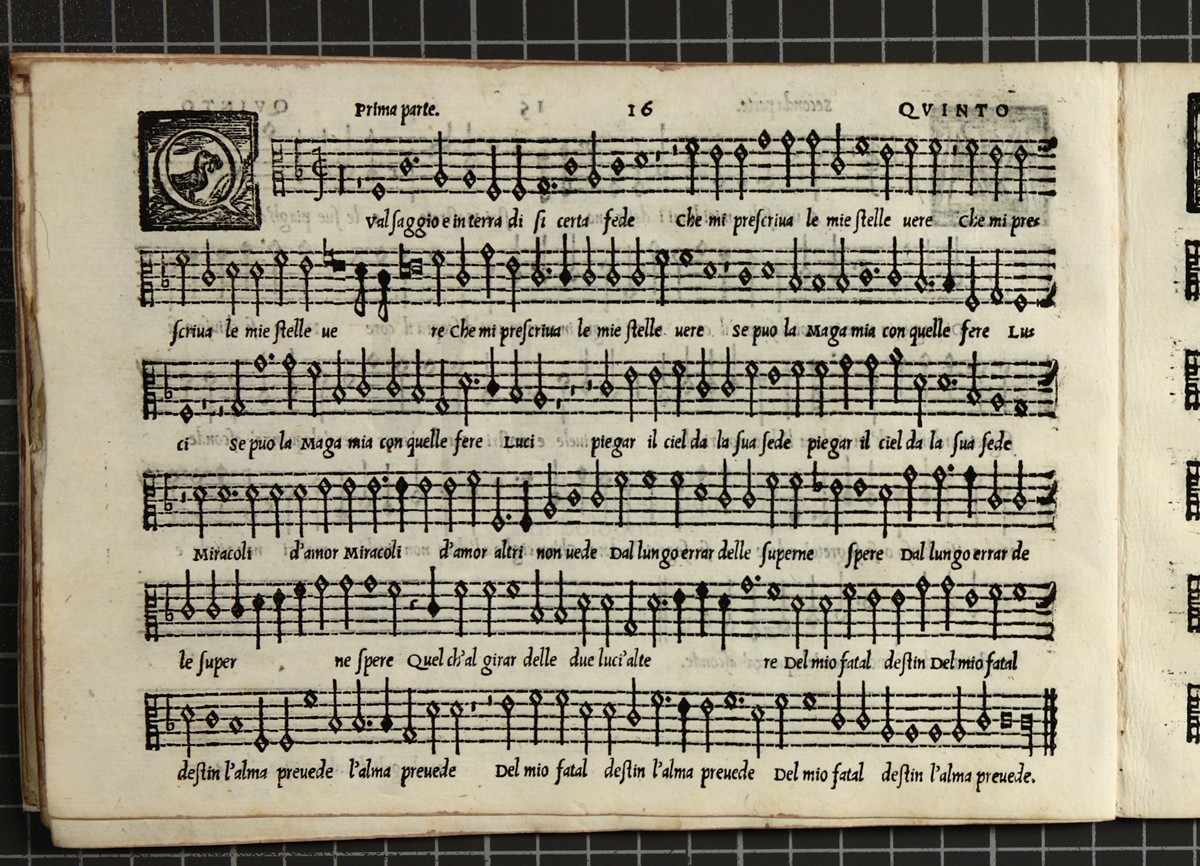 Prima parte. 16 QVINTO
Q Val saggio e in terra di si certa fede Che mi prescriua le mie stelle uere Che mi pres
scriua le mie stelle ue re Che mi prescriua le mie stelle uere Se puo la Maga mia con quelle fere Lus
ci Se puo la Maga mia con quelle fere Luci piegar il ciel da la sua sede piegar il ciel da la sua sede
Miracoli d'amor Miracoli d'amor altri non uede Dal lungo errar delle superne spere Dal lungo errar de
le super ne spere Quel ch'al girar delle due luci'alte re Del mio fatal destin Del mio fatal
destin l'alma preuede l'alma preuede Del mio fatal destin l'alma preuede Del mio fatal destin l'alma preuede.